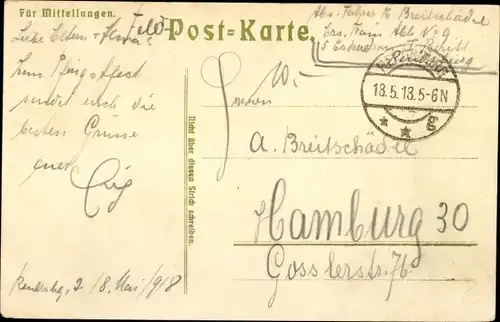 Für Mitteilungen.
Feld Post-Karte.
Abs. Fahrer K Breitschädel
Ers. Train Abt. No 9
5 Eskadron
18.5.18.5-6N
* * g
10.-
Liebe Eltern +
Zum Pfingstfest
sendet euch die
besten Grüsse
euer
18 Mai 1918
Nicht über diesen Strich schreiben.
A. Breitschädel
Hamburg 30
Gosslerstr. 76